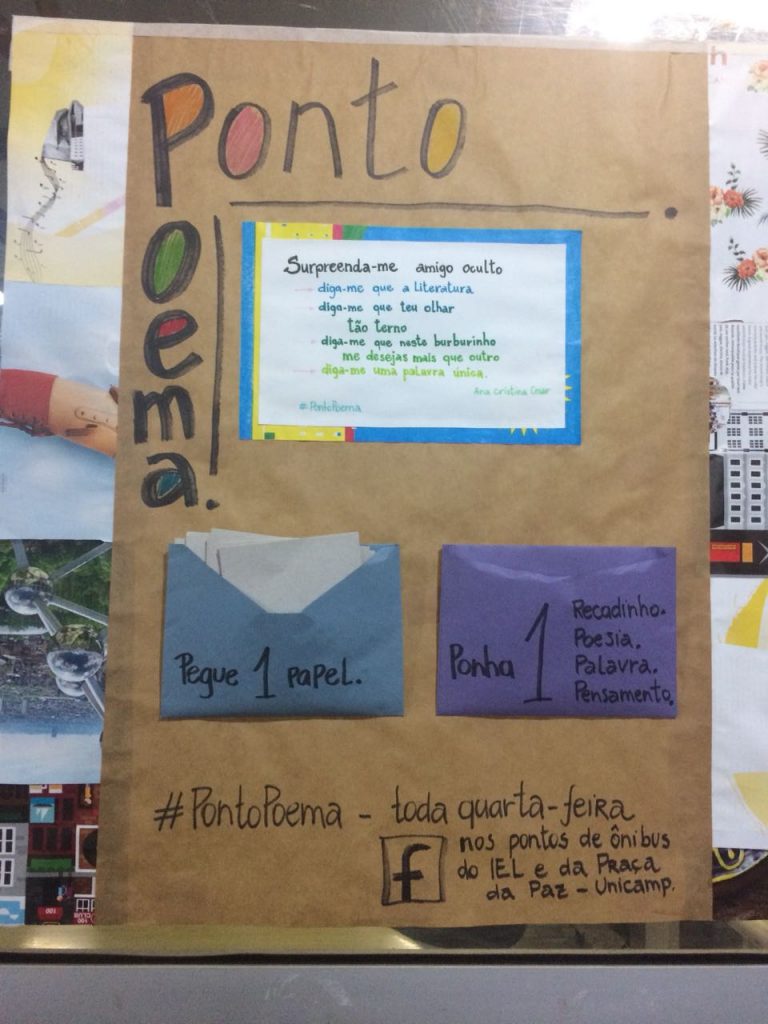 Ponto
Poema.
Surpreenda-me amigo oculto
diga-me que a literatura
diga-me que teu olhar
tão terno
diga-me que neste burburinho
me desejas mais que outro
diga-me uma palavra única.
Ana Cristina Cesar
#PontoPoema
Pegue 1 papel.
Ponha 1
Recadinho.
Poesia.
Palavra.
Pensamento.
#PontoPoema - toda quarta-feira
nos pontos de ônibus
do IEL e da Praça
da Paz - Unicamp.
f